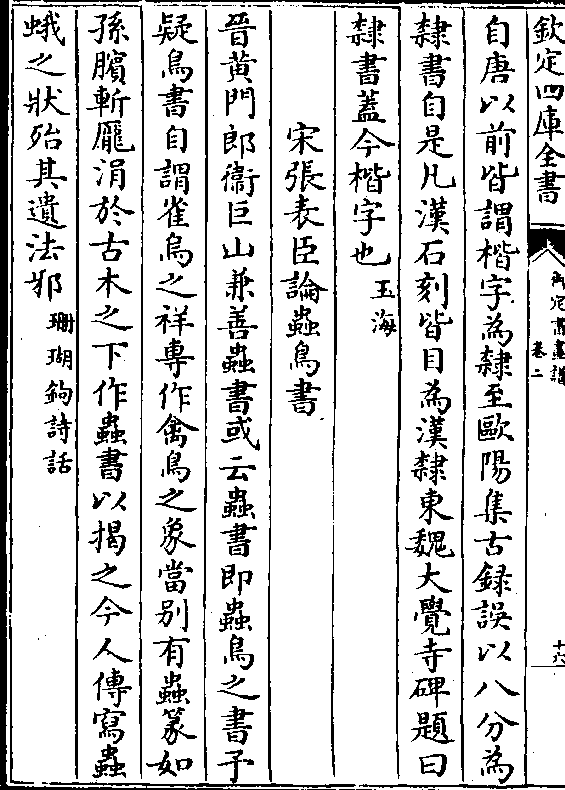 欽定四庫全書
御定書畫譜
卷二
十六
自唐以前皆謂楷字為隸至歐陽集古録誤以八分為
隸書自是凡漢石刻皆目為漢隸東魏大覺寺碑題曰
隸書蓋今楷字也玉海
宋張表臣論蟲鳥書
晉黄門郎衞巨山兼善蟲書或云蟲書即蟲鳥之書予
疑鳥書自謂雀烏之祥專作禽鳥之象當别有蟲篆如
孫臏斬龎涓於古木之下作蟲書以揭之今人傳寫蟲
蛾之狀殆其遺法邪珊瑚鉤詩話